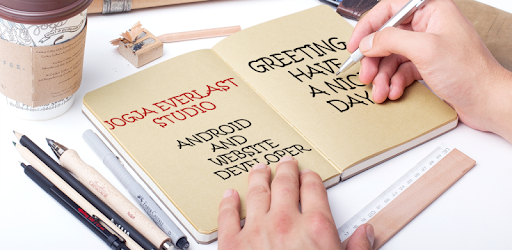 JOGJA EVERLAST
STUDIO
ANDROID
AND
WEBSITE
DEVELOPER
GREETING
HAVE
A NICE
DAY